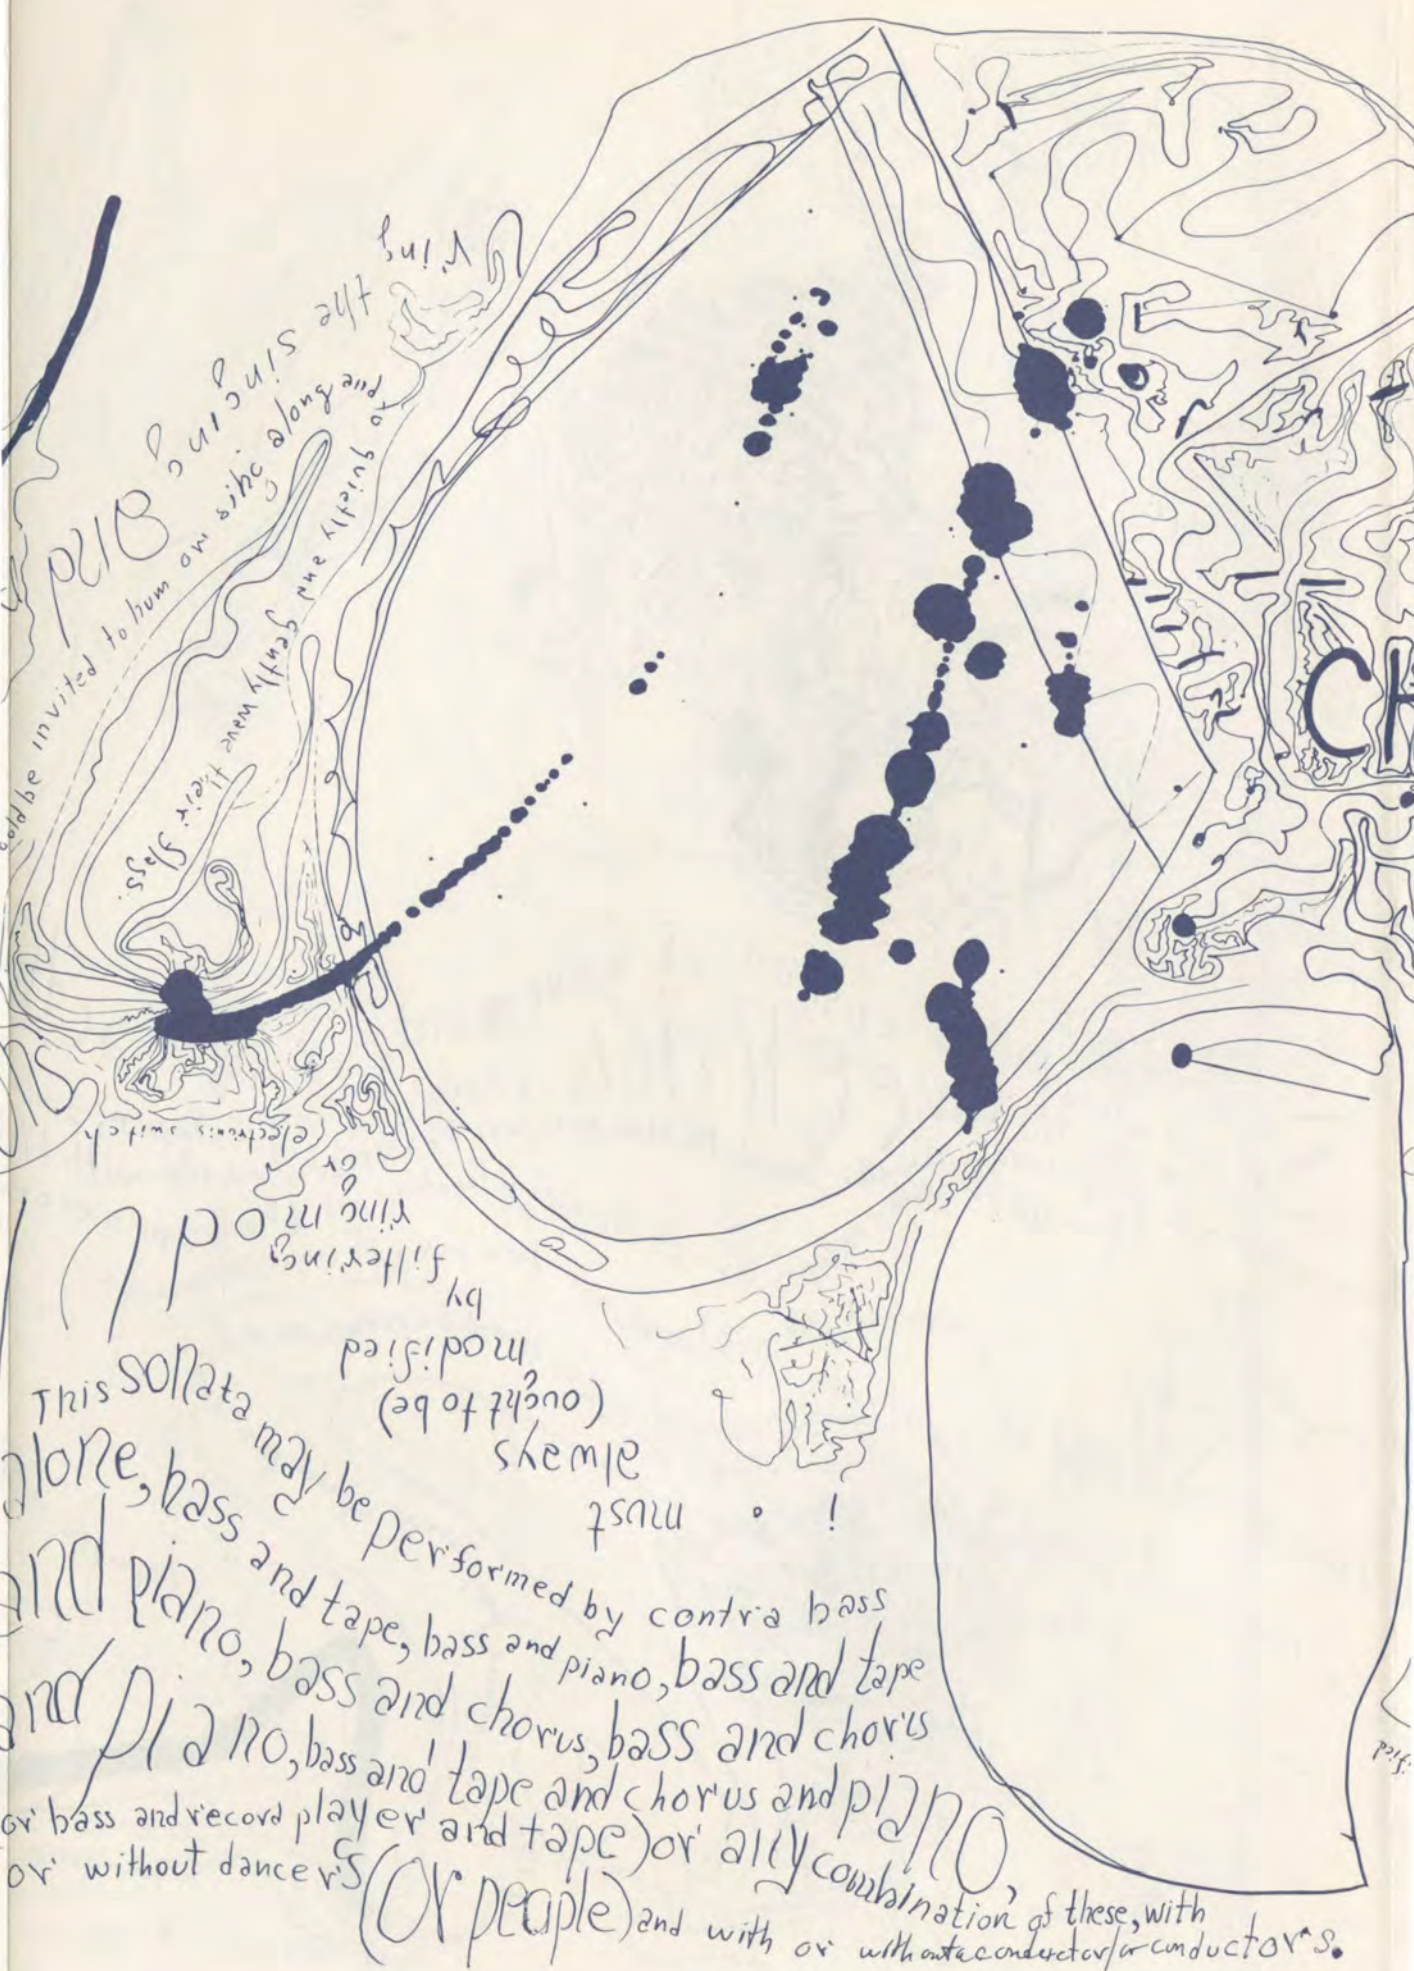 ring the singing and
could be invited to hum or sing along
and to quietly and gently wave their flags.
CH
! . must
always
(ought to be)
modified
by
filtering
ring mod
or
electronic switch
This sonata may be performed by contra bass
alone, bass and tape, bass and piano, bass and tape
and piano, bass and chorus, bass and chorus
and piano, bass and tape and chorus and piano,
or bass and record player and tape) or any combination of these, with
or without dancers (or people) and with or without a conductor/or conductors.